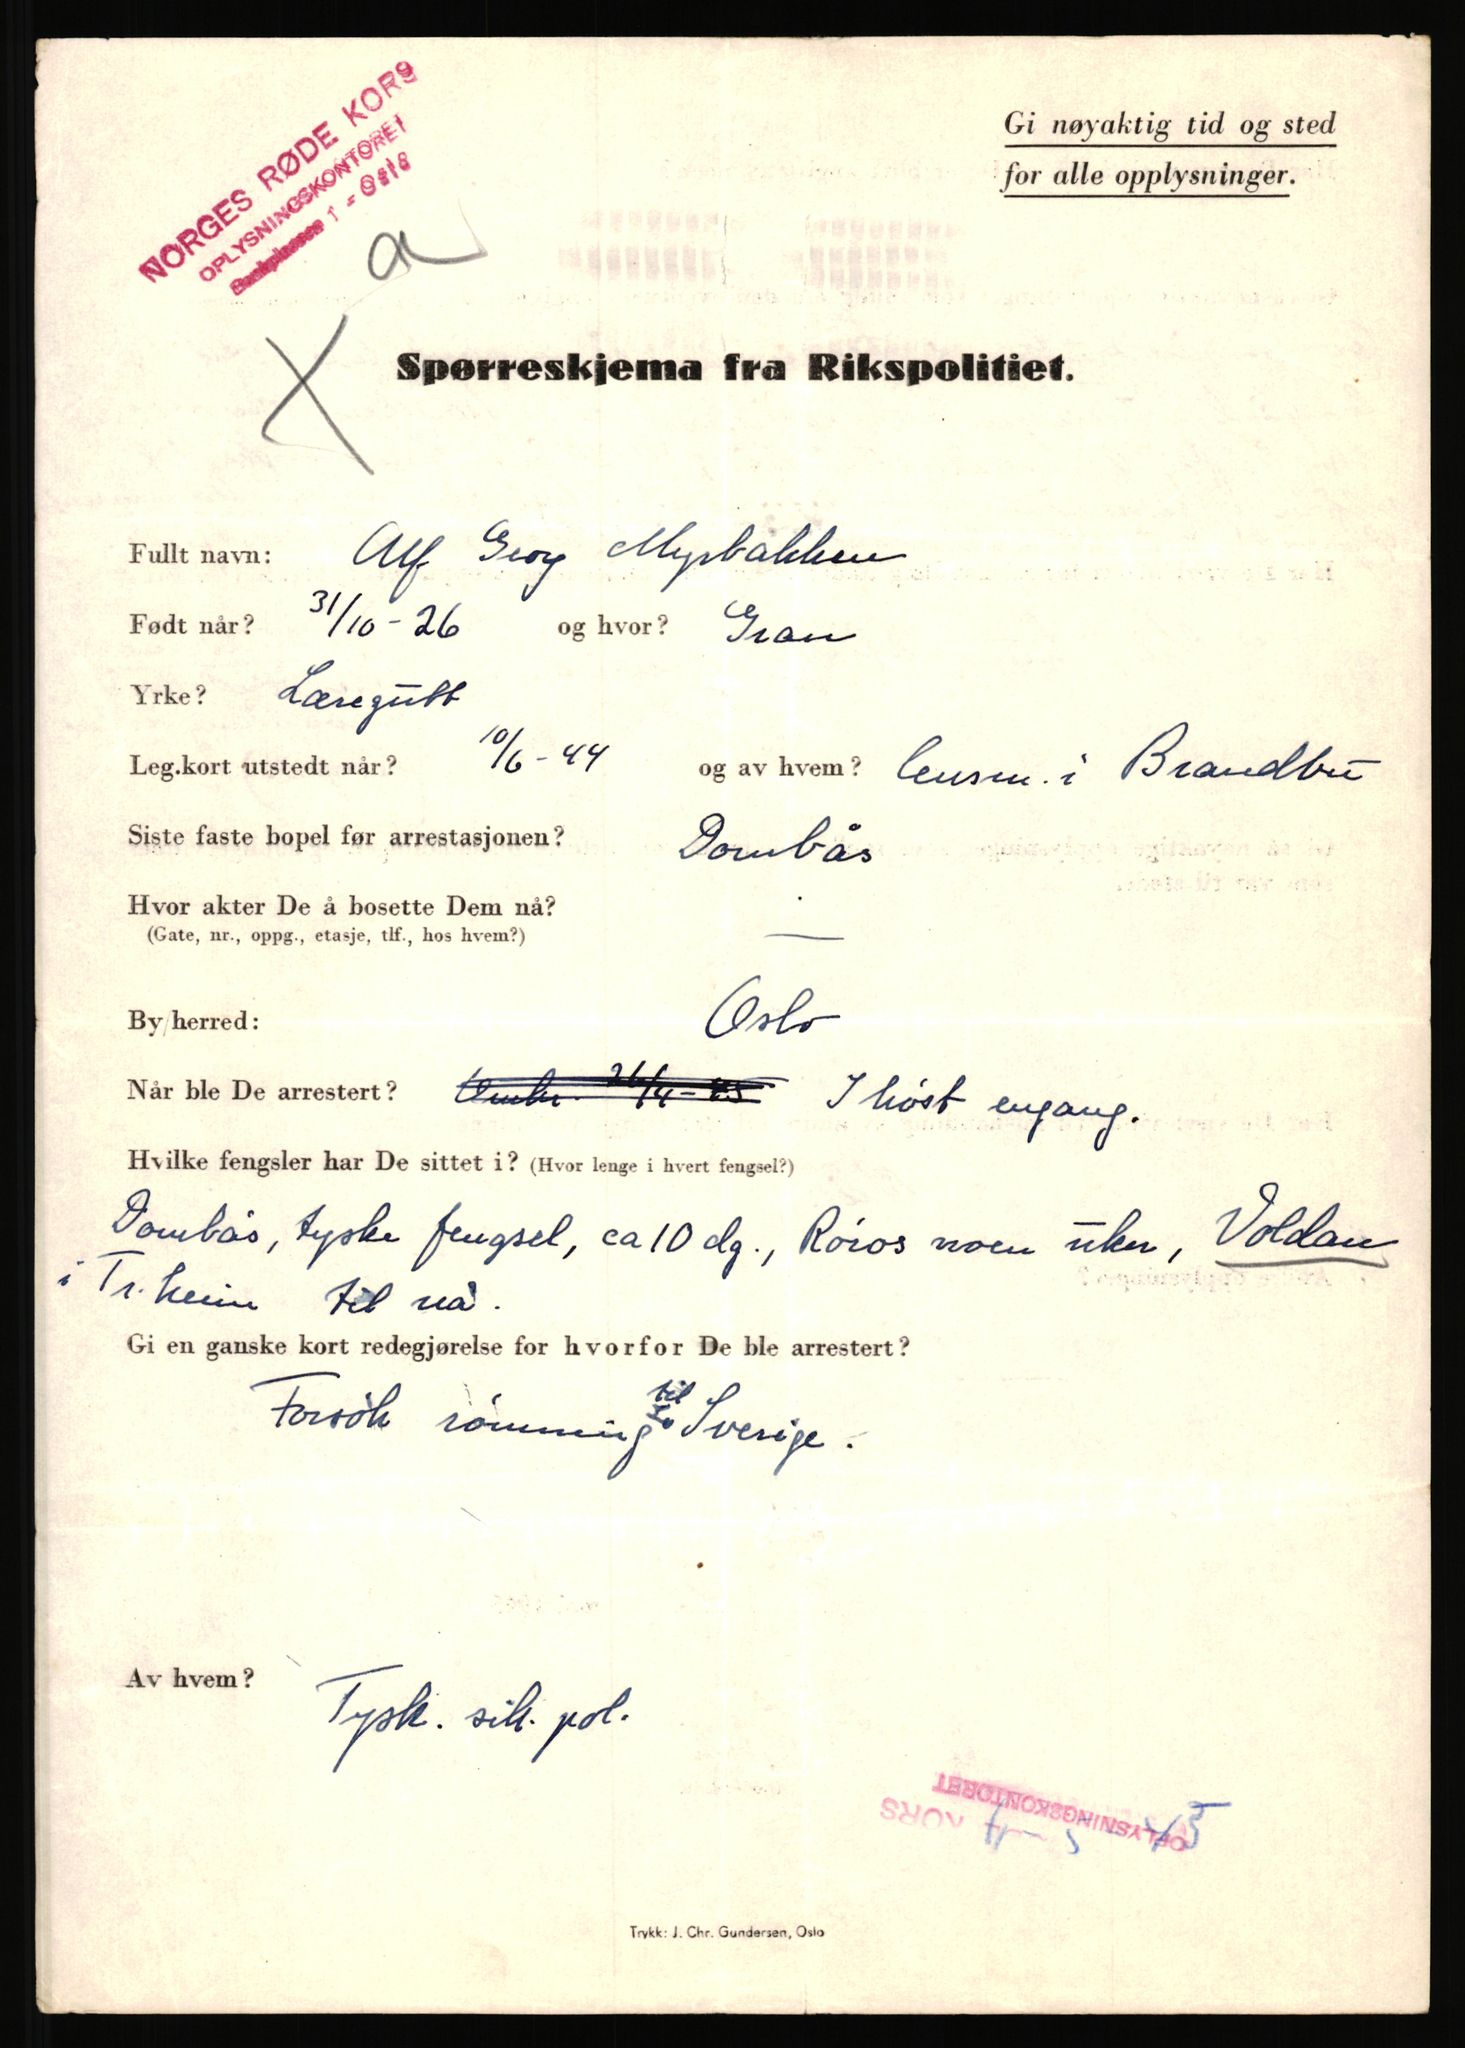 NORGES RØDE KORS
OPLYSNINGSKONTORET
1 - Oslo
a
Gi nøyaktig tid og sted
for alle opplysninger.
Spørreskjema fra Rikspolitiet.
Fullt navn: Alf Georg Myrbakken
Født når? 31/10-26 og hvor? Gran
Yrke? Læregutt
Leg.kort utstedt når? 10/6-44 og av hvem? lensm. i Brandbu
Siste faste bopel før arrestasjonen? Dombås
Hvor akter De å bosette Dem nå? —
(Gate, nr., oppg., etasje, tlf., hos hvem?)
By/herred: Oslo
Når ble De arrestert? 26/4-45 I høst engang.
Hvilke fengsler har De sittet i? (Hvor lenge i hvert fengsel?)
Dombås, tyske fengsel, ca 10 dg., Röros noen uker, Voldan
i Tr.heim til nå.
Gi en ganske kort redegjørelse for hvorfor De ble arrestert?
til
Forsök römning Sverige.
Av hvem? Tysk. sik. pol.
OPLYSNINGSKONTORET
KORS
Trykk: J. Chr. Gundersen, Oslo